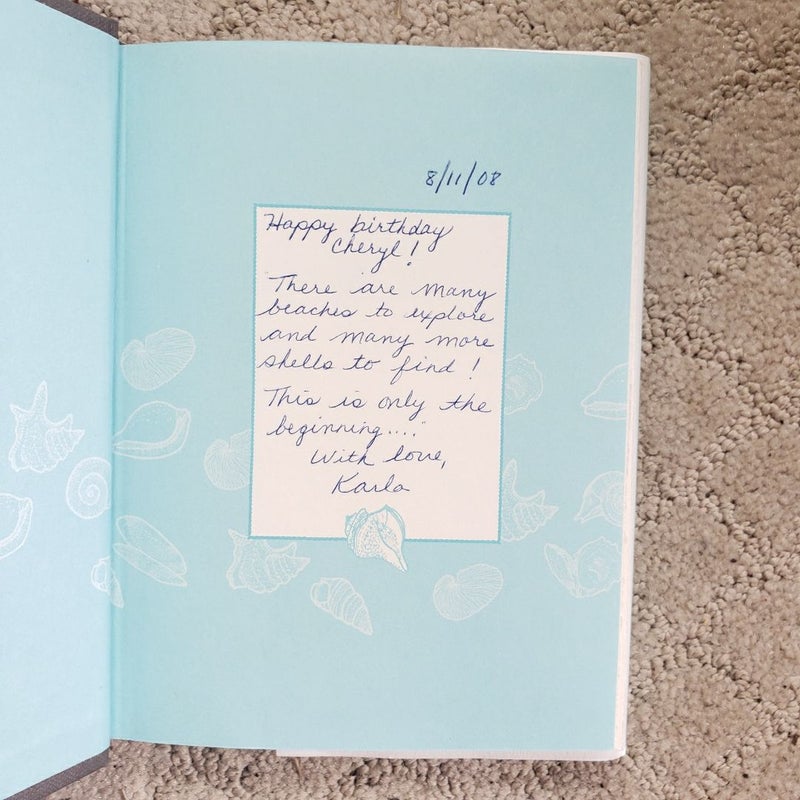 8/11/08
Happy birthday
Cheryl!
There are many
beaches to explore
and many more
shells to find!
This is only the
beginning....
With love,
Karla